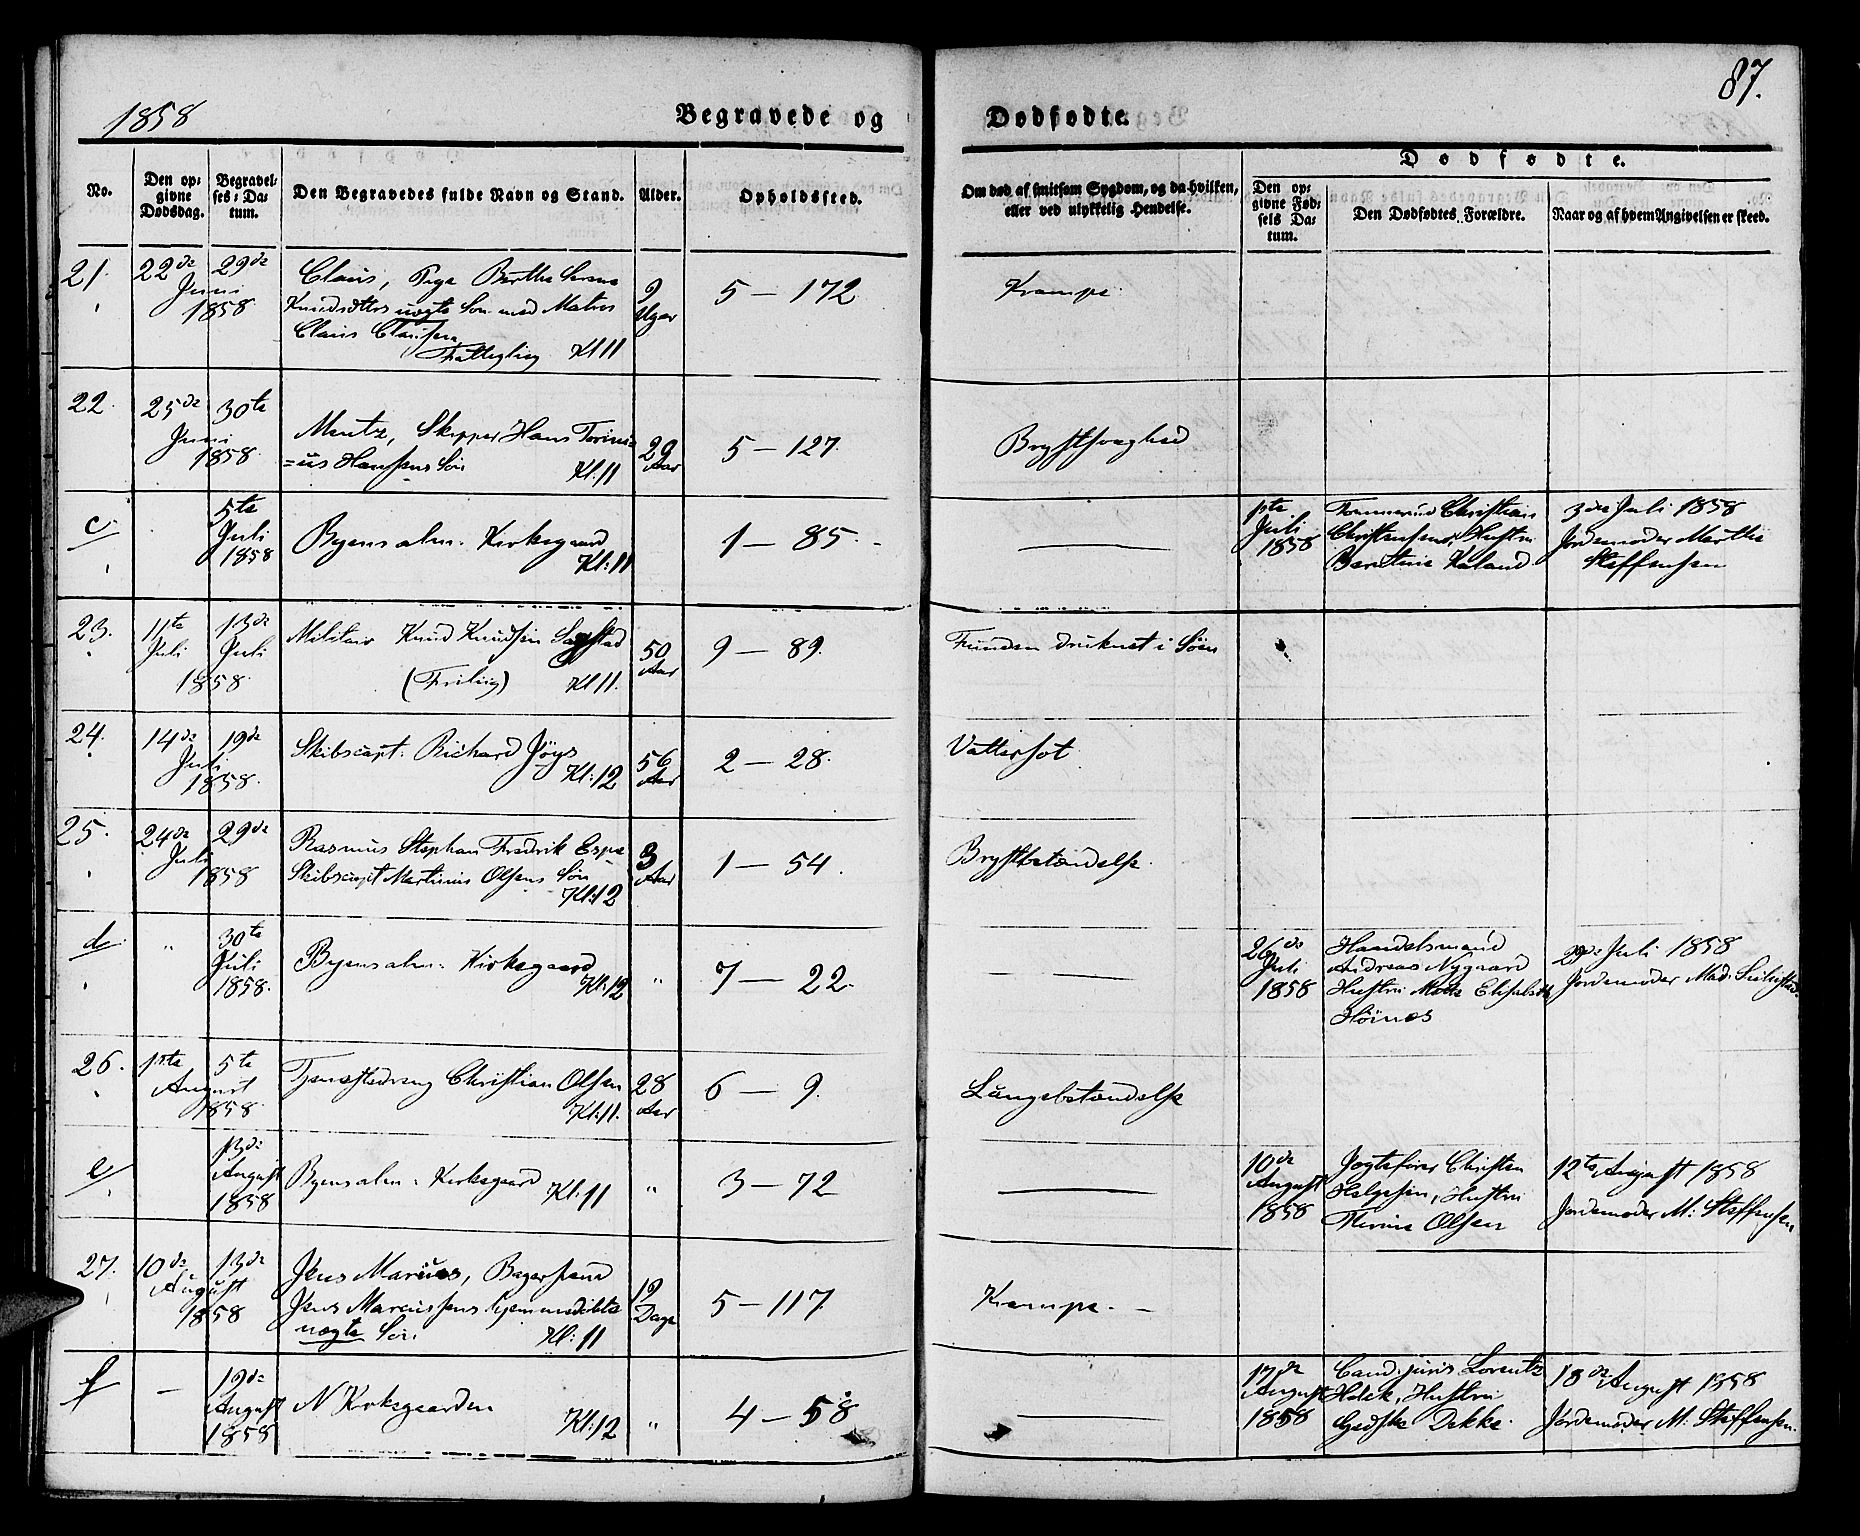 1858
Begravede og
Dødfødte.
87.
No.
Den op-
givne
Dødsdag.
Begravel-
ses-Da-
tum.
Den Begravedes fulde Navn og Stand.
Alder.
Opholdssted.
Om død af smitsom Sygdom, og da hvilken,
eller ved ulykkelig Hendelse.
Dødfødte.
Den op-
givne Fød-
sels Da-
tum.
Den Dødfødtes Forældre.
Naar og af hvem Angivelsen er skeed.
21.
22de
Juni
29de
1858
Claus, Pige Berthe
Knudsdtrs uægte Søn med Matros
Claus Claussen
Fattiglig Kl 11
9
Uger
5 - 172
Krampe.
22.
25de
Juni
30te
1858.
Mentz, Skipper Hans
=us Hansens Søn
Kl: 11
29
Aar
5 - 127.
Brystsvaghed
c.
5te
Juli
1858
Byens alm. Kirkegaard
Kl: 11
1 - 85.
1ste
Juli
1858
Christian
Christensens, Hustru
Kaland
3die Juli 1858
Jordemoder Marthe
Steffensen
23.
11te
Juli
13de
Juli
1858.
Militair Knud Knudsen
(Friliig) Kl 11.
50
Aar
9 - 89.
Funden druknet i Søen
24.
14de
Juli
19de
1858.
Skibscapt. Richard
Kl: 12
56
Aar
2 - 28.
Vattersot
25.
24de
Juli
29de
1858
Rasmus Stephan Fredrik
Skibscapt Martinus Olsens Søn
Kl: 12
3
Aar
1 - 54.
Brystbetændelse.
d.
"
30te
Juli
1858.
Byens alm. Kirkegaard
Kl: 12
"
7 - 22.
26de
Juli
1858
Handelsmand
Andreas Nygaard
Hustru Mette Elisabeth
Høines
29de Juli 1858
Jordemoder Mad.
26.
1ste
August
5te
1858.
Tjenestedreng Christian Olsen
Kl: 11.
28
Aar
6 - 9.
Lungebetændelse
e.
13de
August
1858
Byens alm. Kirkegaard
Kl: 11
"
3 - 72
10de
August
1858
Jogtefører Christen
Helgesen, Hustru
Olsen
12te August 1858
Jordemoder M: Steffensen
27.
10de
August
13de
1858
Jens Marius, Bagersvend
Jens Marcussens hjemmedøbte
uægte Søn
Kl: 11
19
Dage
5 - 117.
Krampe.
f
19de
August
1858
N Kirkegaarden
Kl: 12
"
4 - 58
17de
August
1858
Cand. juris Lorentz
Holck, Hustru
Gjedske Dekke.
18de August 1858
Jordemoder M: Steffensen